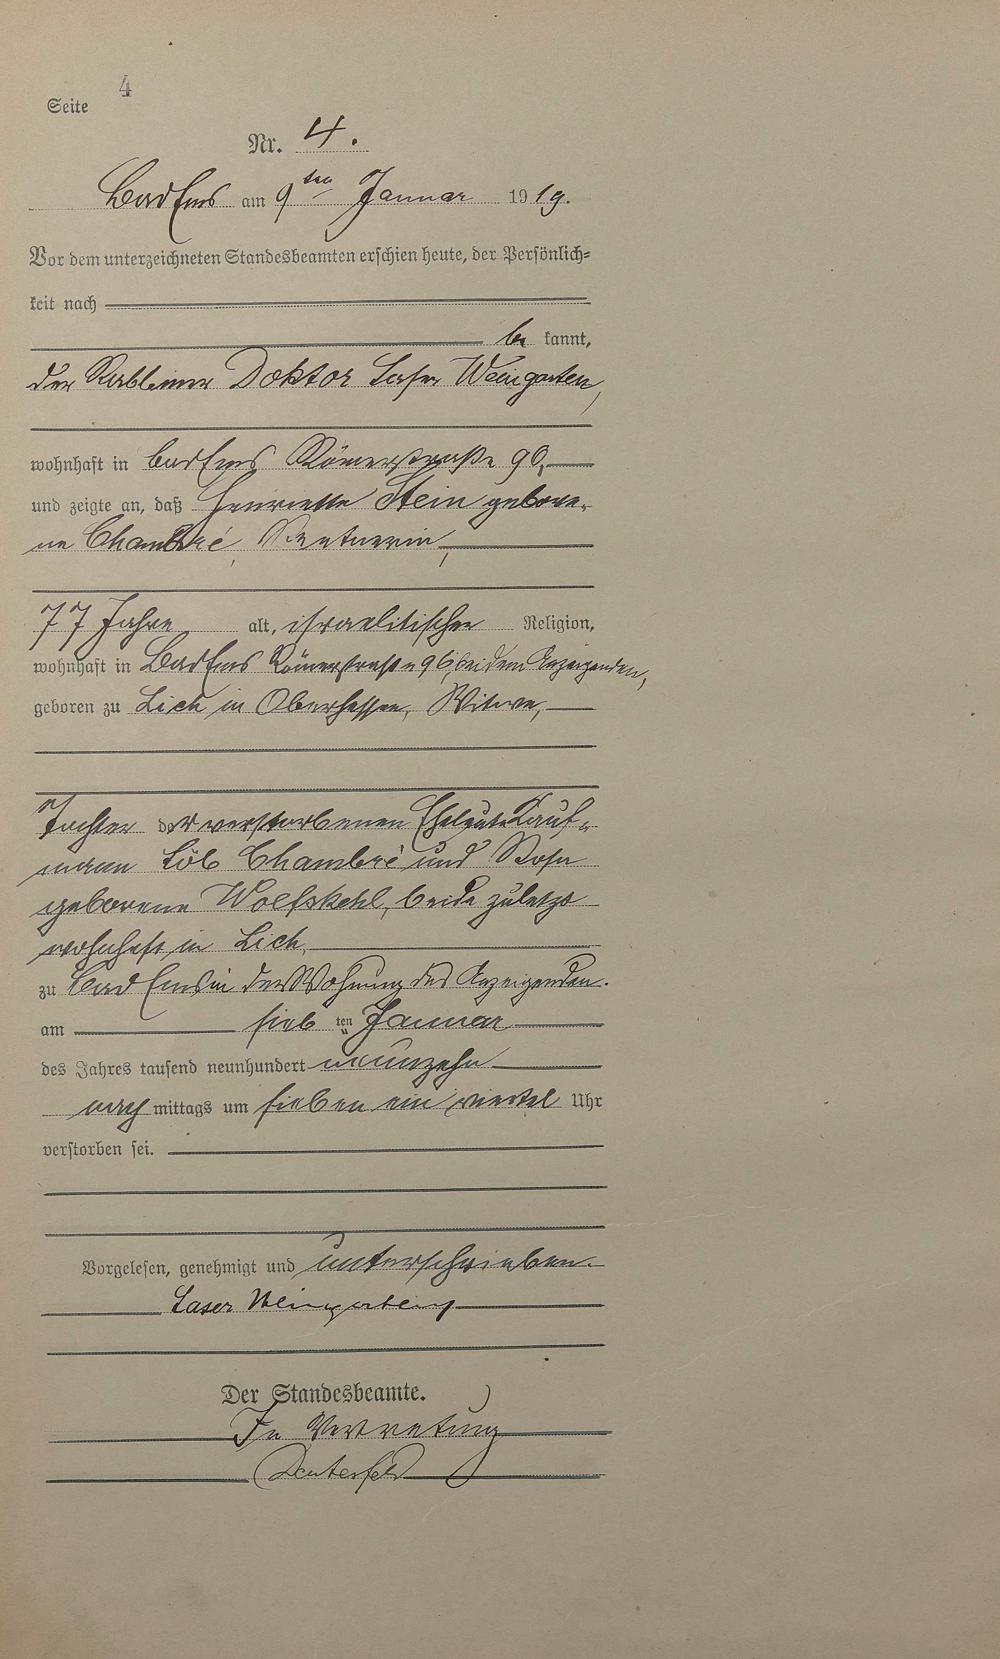 Seite 4
Nr. 4.
Bad Ems am 9ten Januar 1919.
Vor dem unterzeichneten Standesbeamten erschien heute, der Persönlich=
keit nach
be kannt,
der Rabbiner Doktor Laser Weingarten,
wohnhaft in Bad Ems Römerstraße 90,
und zeigte an, daß Henriette Stein gebore-
ne Chambré, Rentnerin,
77 Jahre alt, israelitischer Religion,
wohnhaft in Bad Ems Römerstraße 90, bei dem Anzeigenden,
geboren zu Lich in Oberhessen, Witwe,
Tochter der verstorbenen Eheleute Kauf-
mann Löb Chambré und Rosa
geborene Wolfskehl, beide zuletzt
wohnhaft in Lich,
zu Bad Ems in der Wohnung des Anzeigenden.
am sieb ten Januar
des Jahres tausend neunhundert neunzehn
nach mittags um sieben ein viertel Uhr
verstorben sei.
Vorgelesen, genehmigt und unterschrieben.
Laser Weingarten
Der Standesbeamte.
In Vertretung